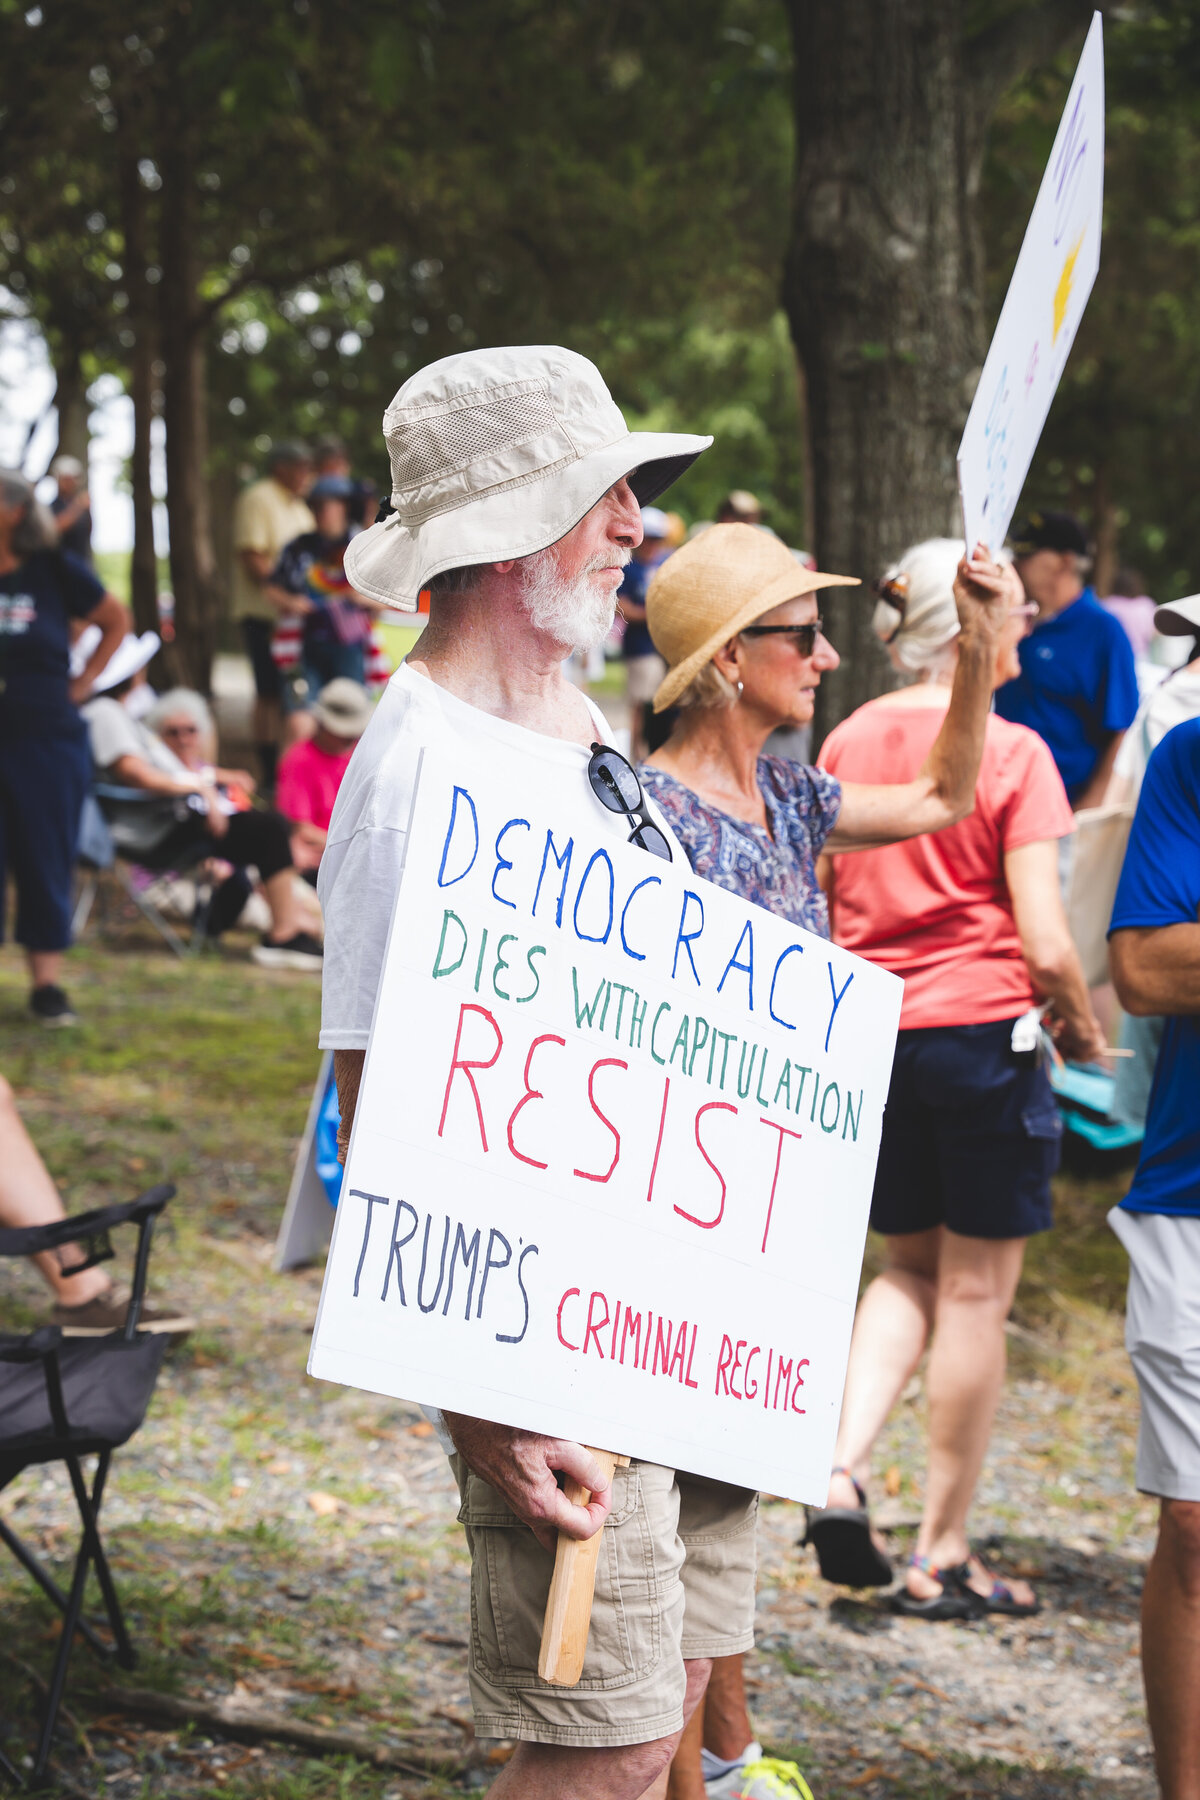 DEMOCRACY
DIES WITH CAPITULATION
RESIST
TRUMP'S CRIMINAL REGIME